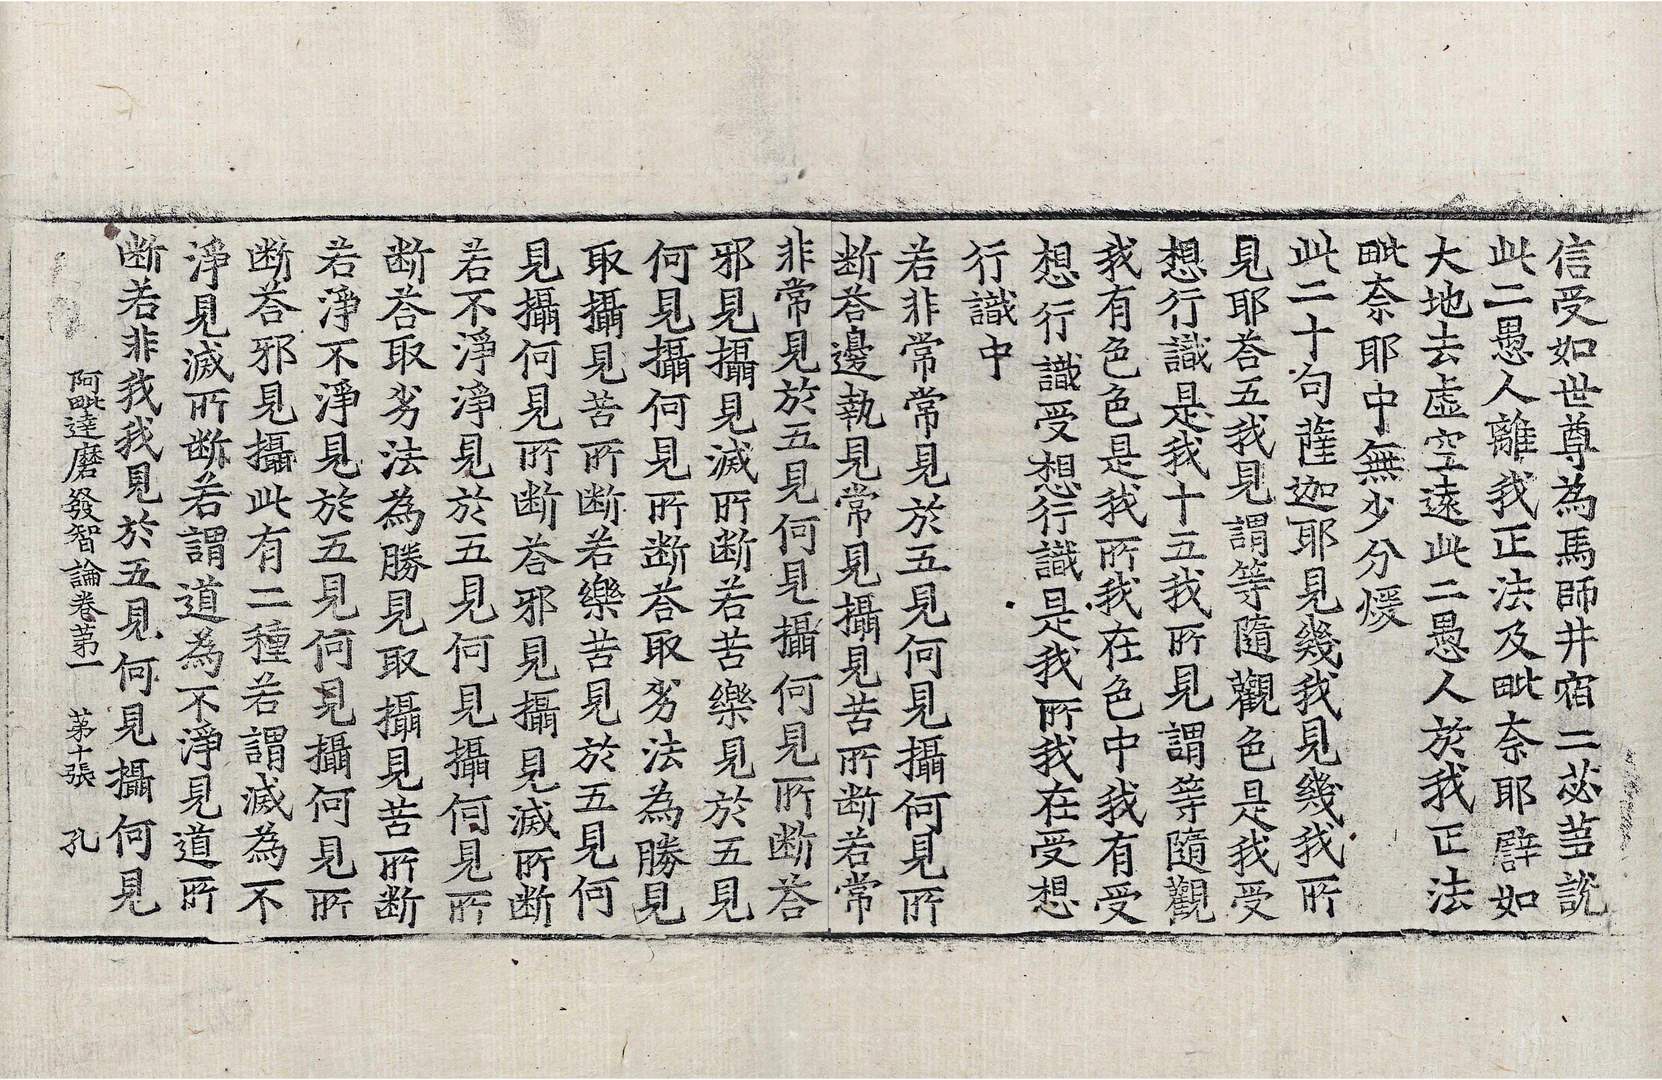 信受如世尊為馬師井宿二苾芻說
此二愚人離我正法及毗奈耶譬如
大地去虛空遠此二愚人於我正法
毗奈耶中無少分煖
此二十句薩迦耶見幾我見幾我所
見耶荅五我見謂等隨觀色是我受
想行識是我十五我所見謂等隨觀
我有色色是我所我在色中我有受
想行識受想行識是我所我在受想
行識中
若非常常見於五見何見攝何見所
断荅邊執見常見攝見苦所断若常
非常見於五見何見攝何見所断荅
邪見攝見滅所断若苦樂見於五見
何見攝何見所断荅取劣法為勝見
取攝見苦所断若樂苦見於五見何
見攝何見所断荅邪見攝見滅所断
若不淨淨見於五見何見攝何見所
断荅取劣法為勝見取攝見苦所断
若淨不淨見於五見何見攝何見所
断荅邪見攝此有二種若謂滅為不
淨見滅所断若謂道為不淨見道所
断若非我我見於五見何見攝何見
阿毗達磨發智論卷苐一 苐十張 孔